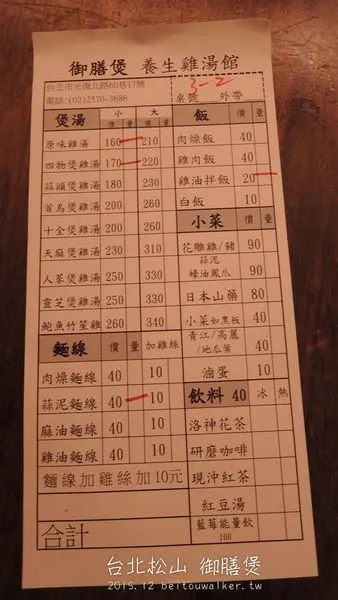 御膳煲 養生雞湯館
台北市光復北路60巷17號
電話:(02)2570-3686
3-2
桌號 外帶
煲湯 小 大
價 量 價 量
原味雞湯 160 210
四物煲雞湯 170 220
蒜頭煲雞湯 180 230
首烏煲雞湯 200 260
十全煲雞湯 200 260
天麻煲雞湯 230 310
人蔘煲雞湯 250 330
靈芝煲雞湯 250 330
鮑魚竹笙雞 260 340
麵線 價 量 加雞絲
肉燥麵線 40 10
蒜泥麵線 40 10
麻油麵線 40 10
雞油麵線 40 10
麵線加雞絲加10元
合計
飯 價 量
肉燥飯 40
雞肉飯 40
雞油拌飯 20
白飯 10
小菜 價 量
花雕雞/豬 90
蒜泥
蠔油鳳爪 90
日本山藥 80
小菜如黑板 40
青江/高麗
/地瓜葉 40
滷蛋 10
飲料 40 冰 熱
洛神花茶
研磨咖啡
現沖紅茶
紅豆湯
藍莓能量飲
100
台北松山 御膳煲
2015.12 beitouwalker.tw